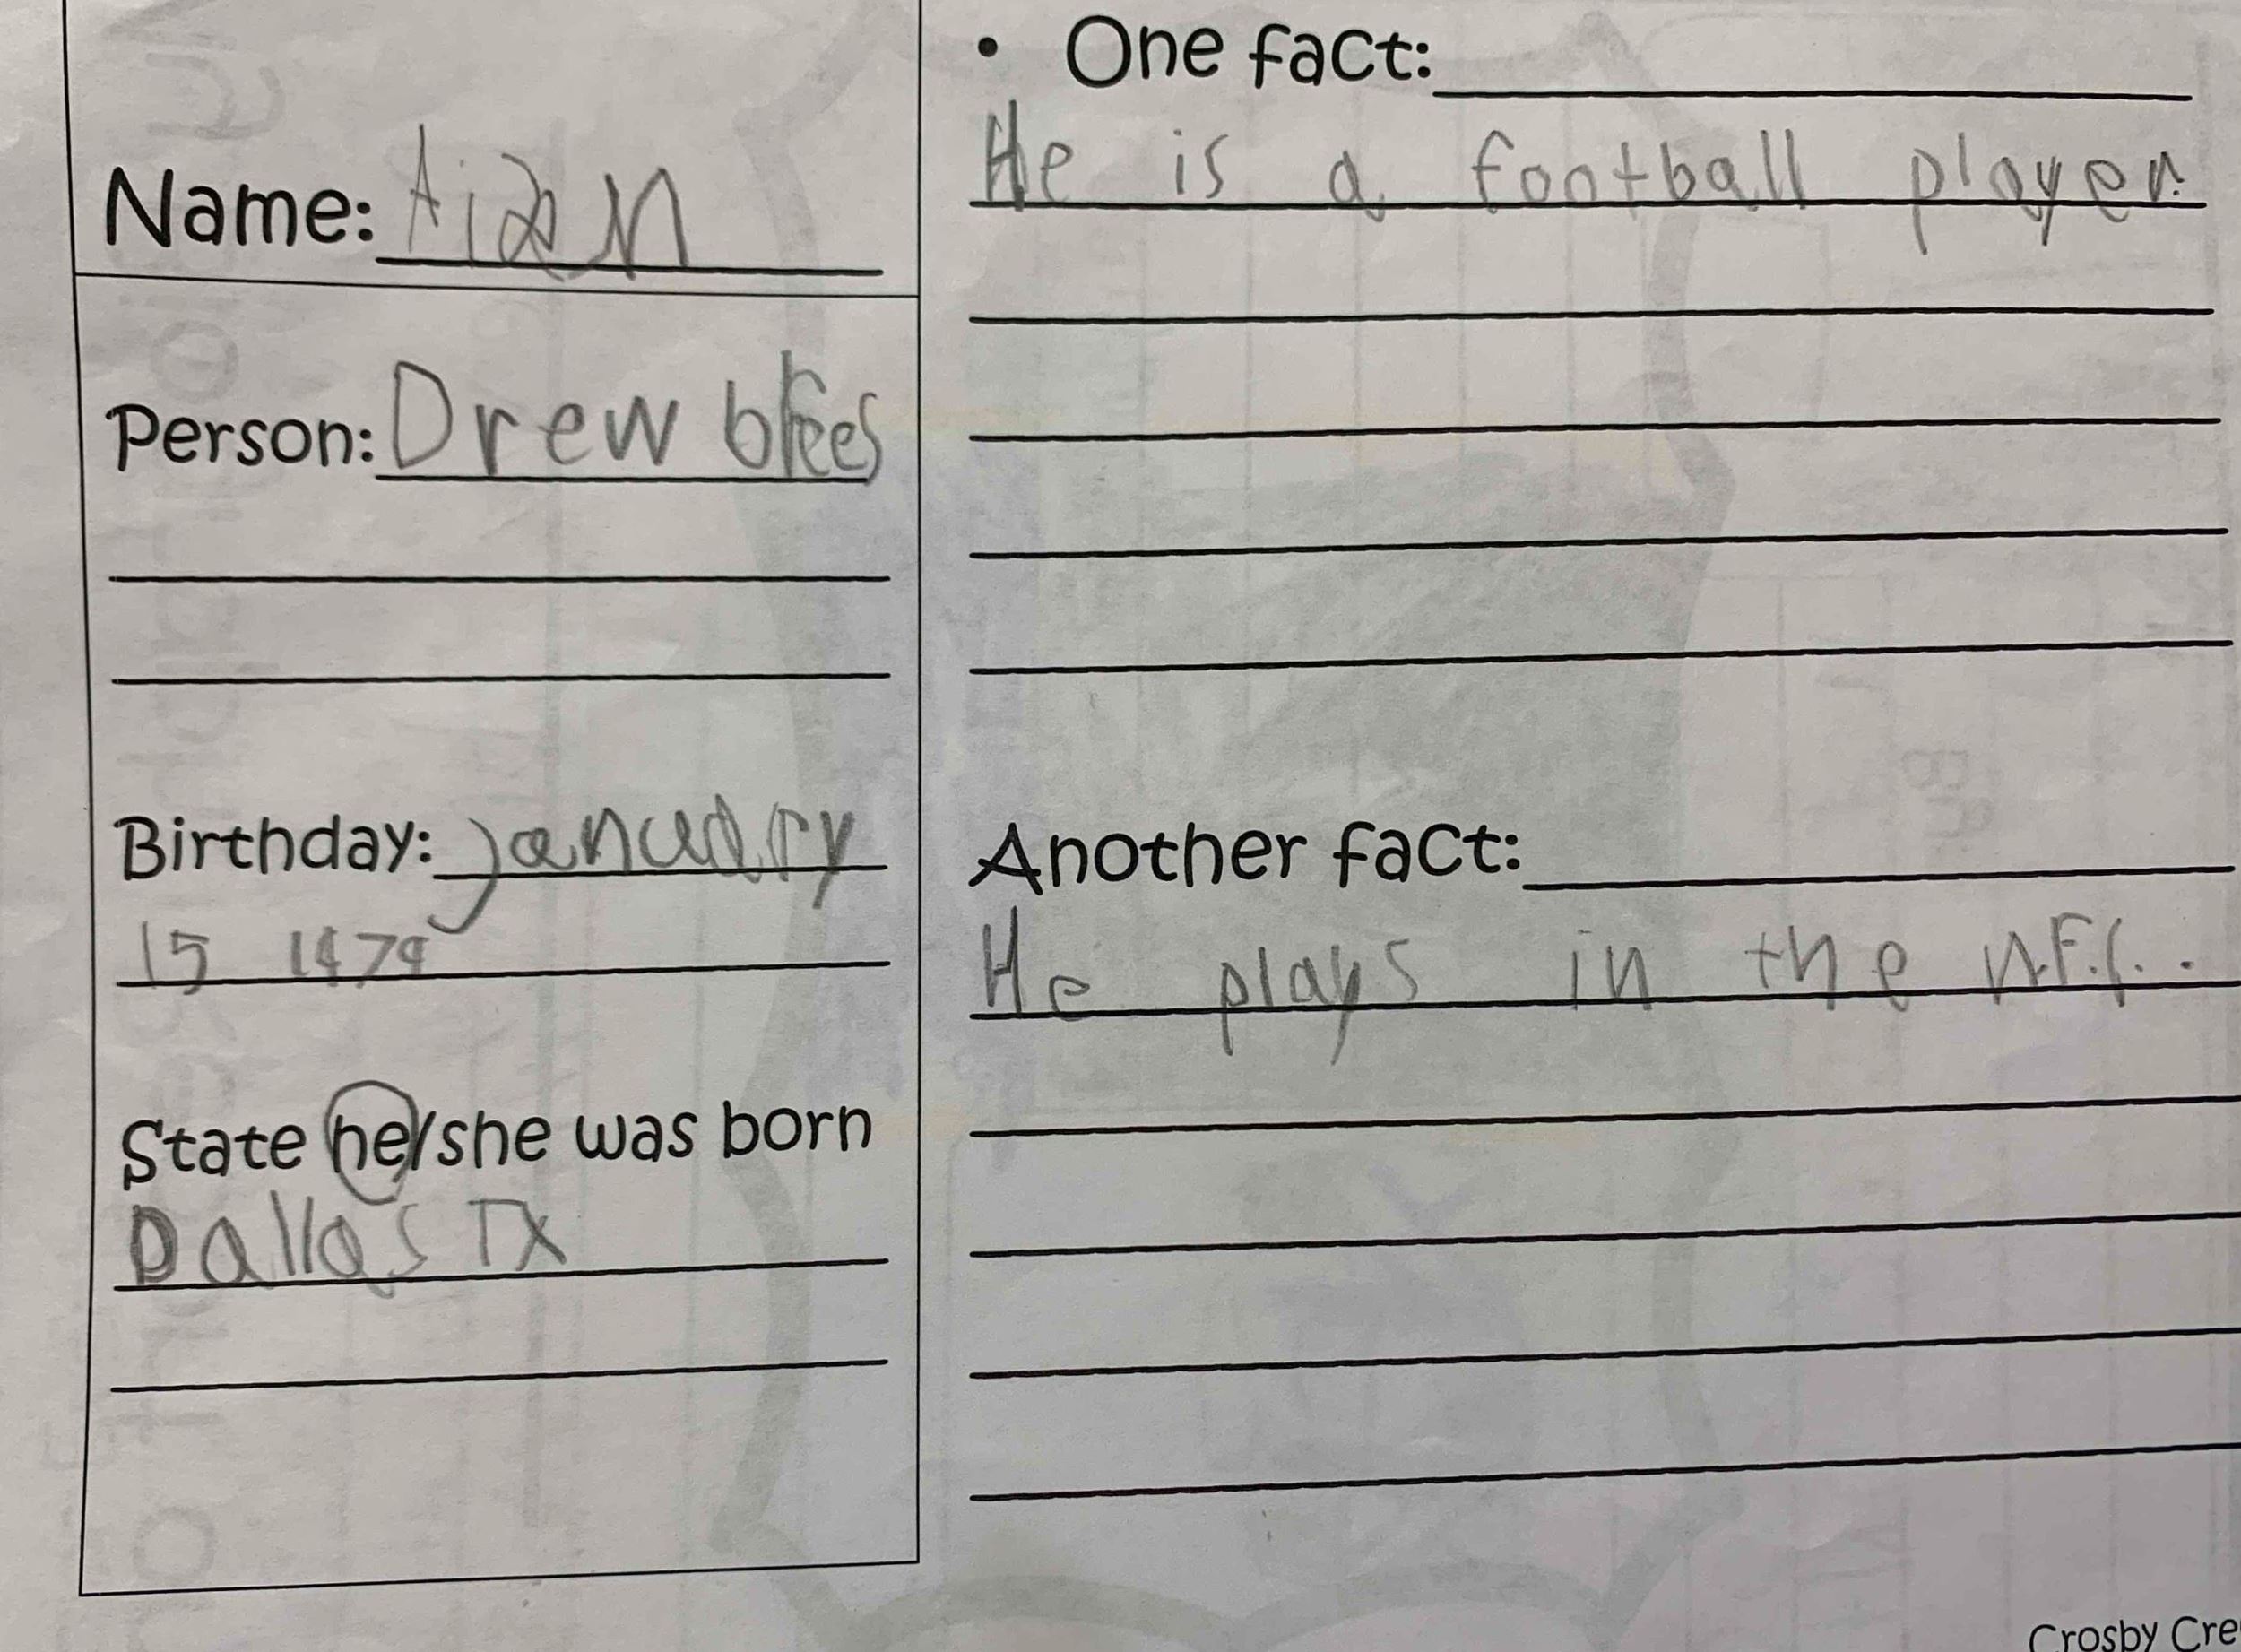 Name:
Person: Drew brees
Birthday: january
15 1979
State he/she was born
Dallas TX
• One fact:
He is a football player.
Another fact:
He plays in the N.F.L.
Crosby Cre